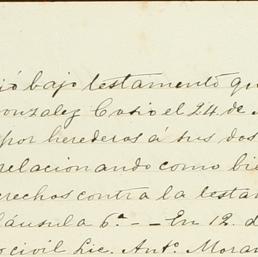 ió bajo testamento qu
onzalez Cosio el 24 de
por herederos á sus dos
relacionando como bie
erechos contra la testa
láusula 6ª. - - En 12. d
civil Lic. Antº. Moran